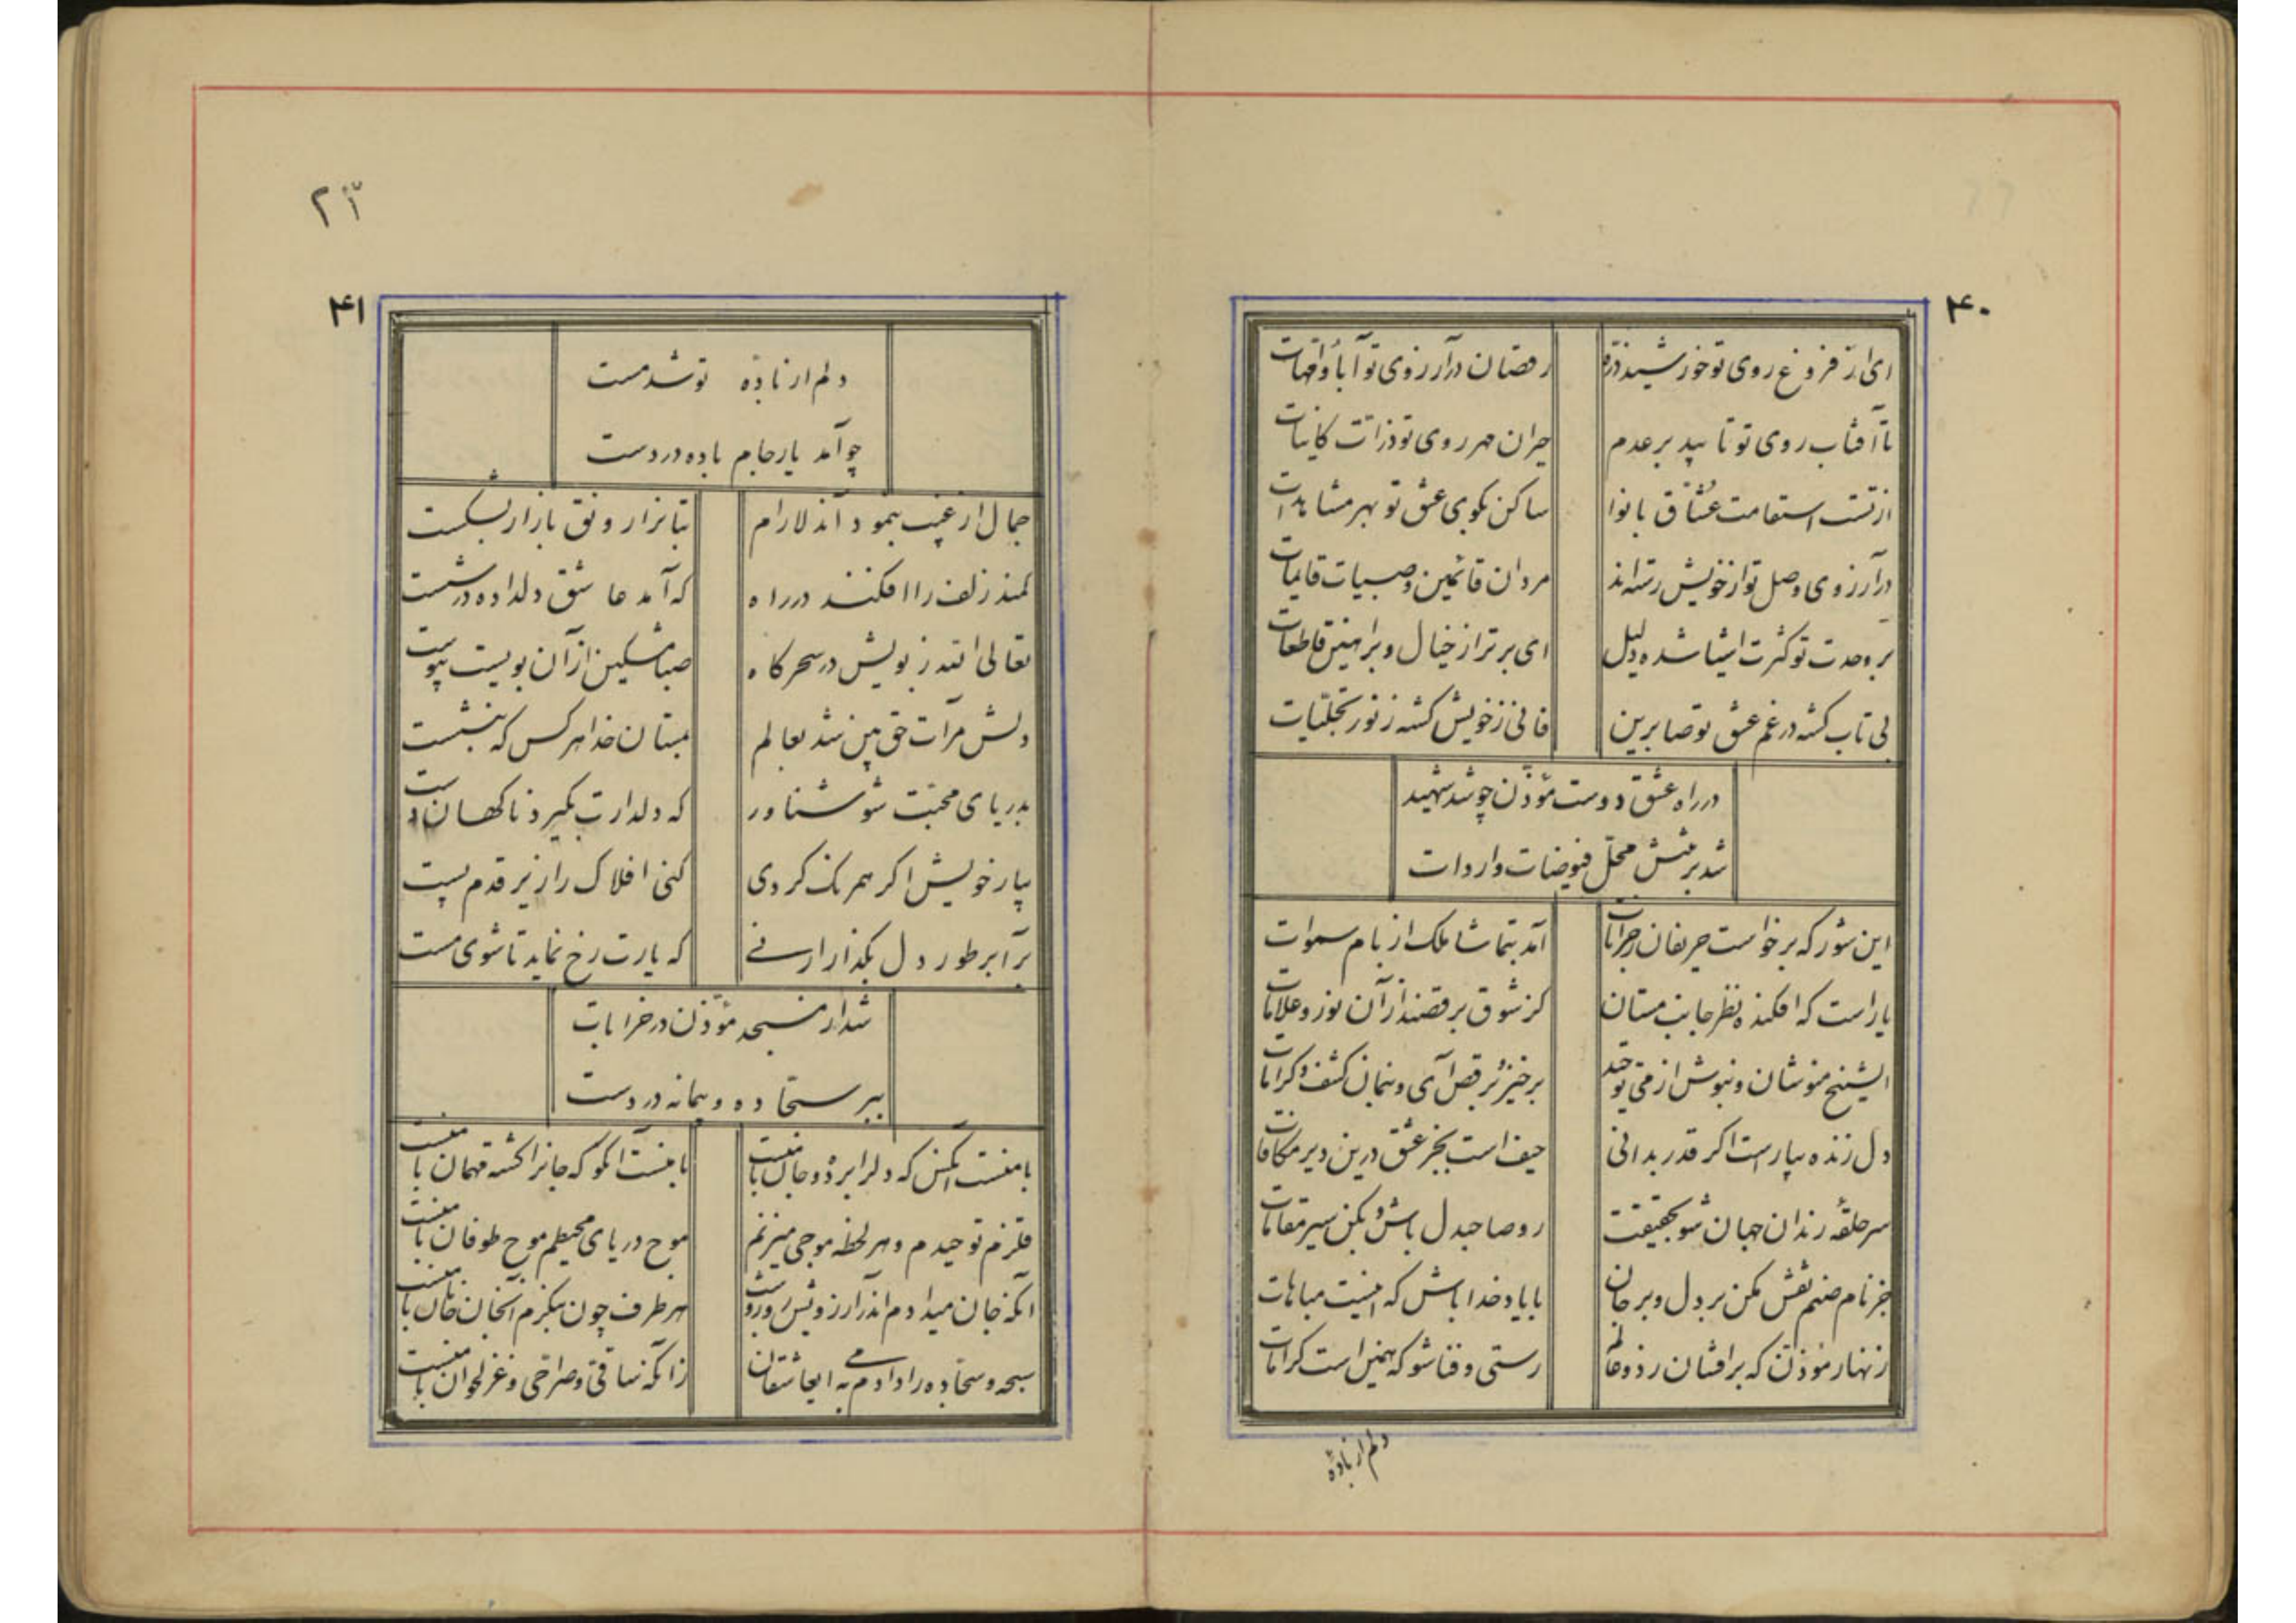 ۴۰
ای از فروغ روی تو خورشید ذره رقصان در آرزوی تو آباء و امهات
تا آفتاب روی تو تابید بر عدم حیران مهر روی تو ذرات کاینات
از تست استقامت عشاق با نوا ساکن بکوی عشق تو بهر مشاهدات
در آرزوی وصل تو از خویش رسته‌اند مردان قائمین وصبیات قایمات
بر وحدت تو کثرت اشیا شده دلیل ای برتر از خیال و براهین قاطعات
بی تاب کشته در غم عشق تو صابرین فانی ز خویش کشته ز نور تجلیات
در راه عشق دوست مؤذن چو شد شهید
شد بر تنش محل فیوضات واردات
این شور که برخواست حریفان خرابات آمد بتماشا ملک از بام سموات
یار است که افکنده نظر جانب مستان کز شوق برقصند از آن نور و علامات
ایشیخ منوشان و بنوش از می توحید برخیز و برقص آی و بنمان کشف و کرامات
دل زنده بیار است اکر قدر بدانی حیف است بجز عشق درین دیر مکافات
سر حلقهٔ رندان جهان شو بحقیقت رو صاحبدل باش و بکن سیر مقامات
جز نام صنم نقش مکن بر دل و بر جان با یاد خدا باش که اینست مباهات
زنهار مؤذن که برافشان ز دو عالم رستی و فنا شو که همین است کرامات
دلم از باده
۲۱
۴۱
دلم از باده تو شد مست
چو آمد یار جام باده در دست
جمال از غیب بنمود آندلارام بتانرا رونق بازار بشکست
کمند زلف را افکند در راه که آمد عاشق دلداده در شست
تعالی الله ز بویش در سحرکاه صبا مشکین از آن بویست پیوست
دلش مرآت حق بین شد بعالم بمستان خدا هر کس که بنشست
بدریای محبت شو شناور که دلدارت بکیرد ناکهان دست
بیار خویش اکر همرنک کردی کنی افلاک را زیر قدم پست
برآ بر طور دل بکذار ارنی که یارت رخ نماید تا شوی مست
شد از مسجد مؤذن در خرابات
ببر سجاده و پیمانه در دست
با منست آنکس که دلرا برد و جان با منست با منست آنکو که جانرا کشته مهمان با منست
قلزم توحیدم و هر لحظه موجی میزنم موج دریای محیطم موج طوفان با منست
آنکه جان میدادم اندر آرزویش روز و شب هر طرف چون بنکرم آنجان جانان با منست
سبحه و سجاده را دادم بمی ایعاشقان زانکه ساقی و صراحی و غزلخوان با منست